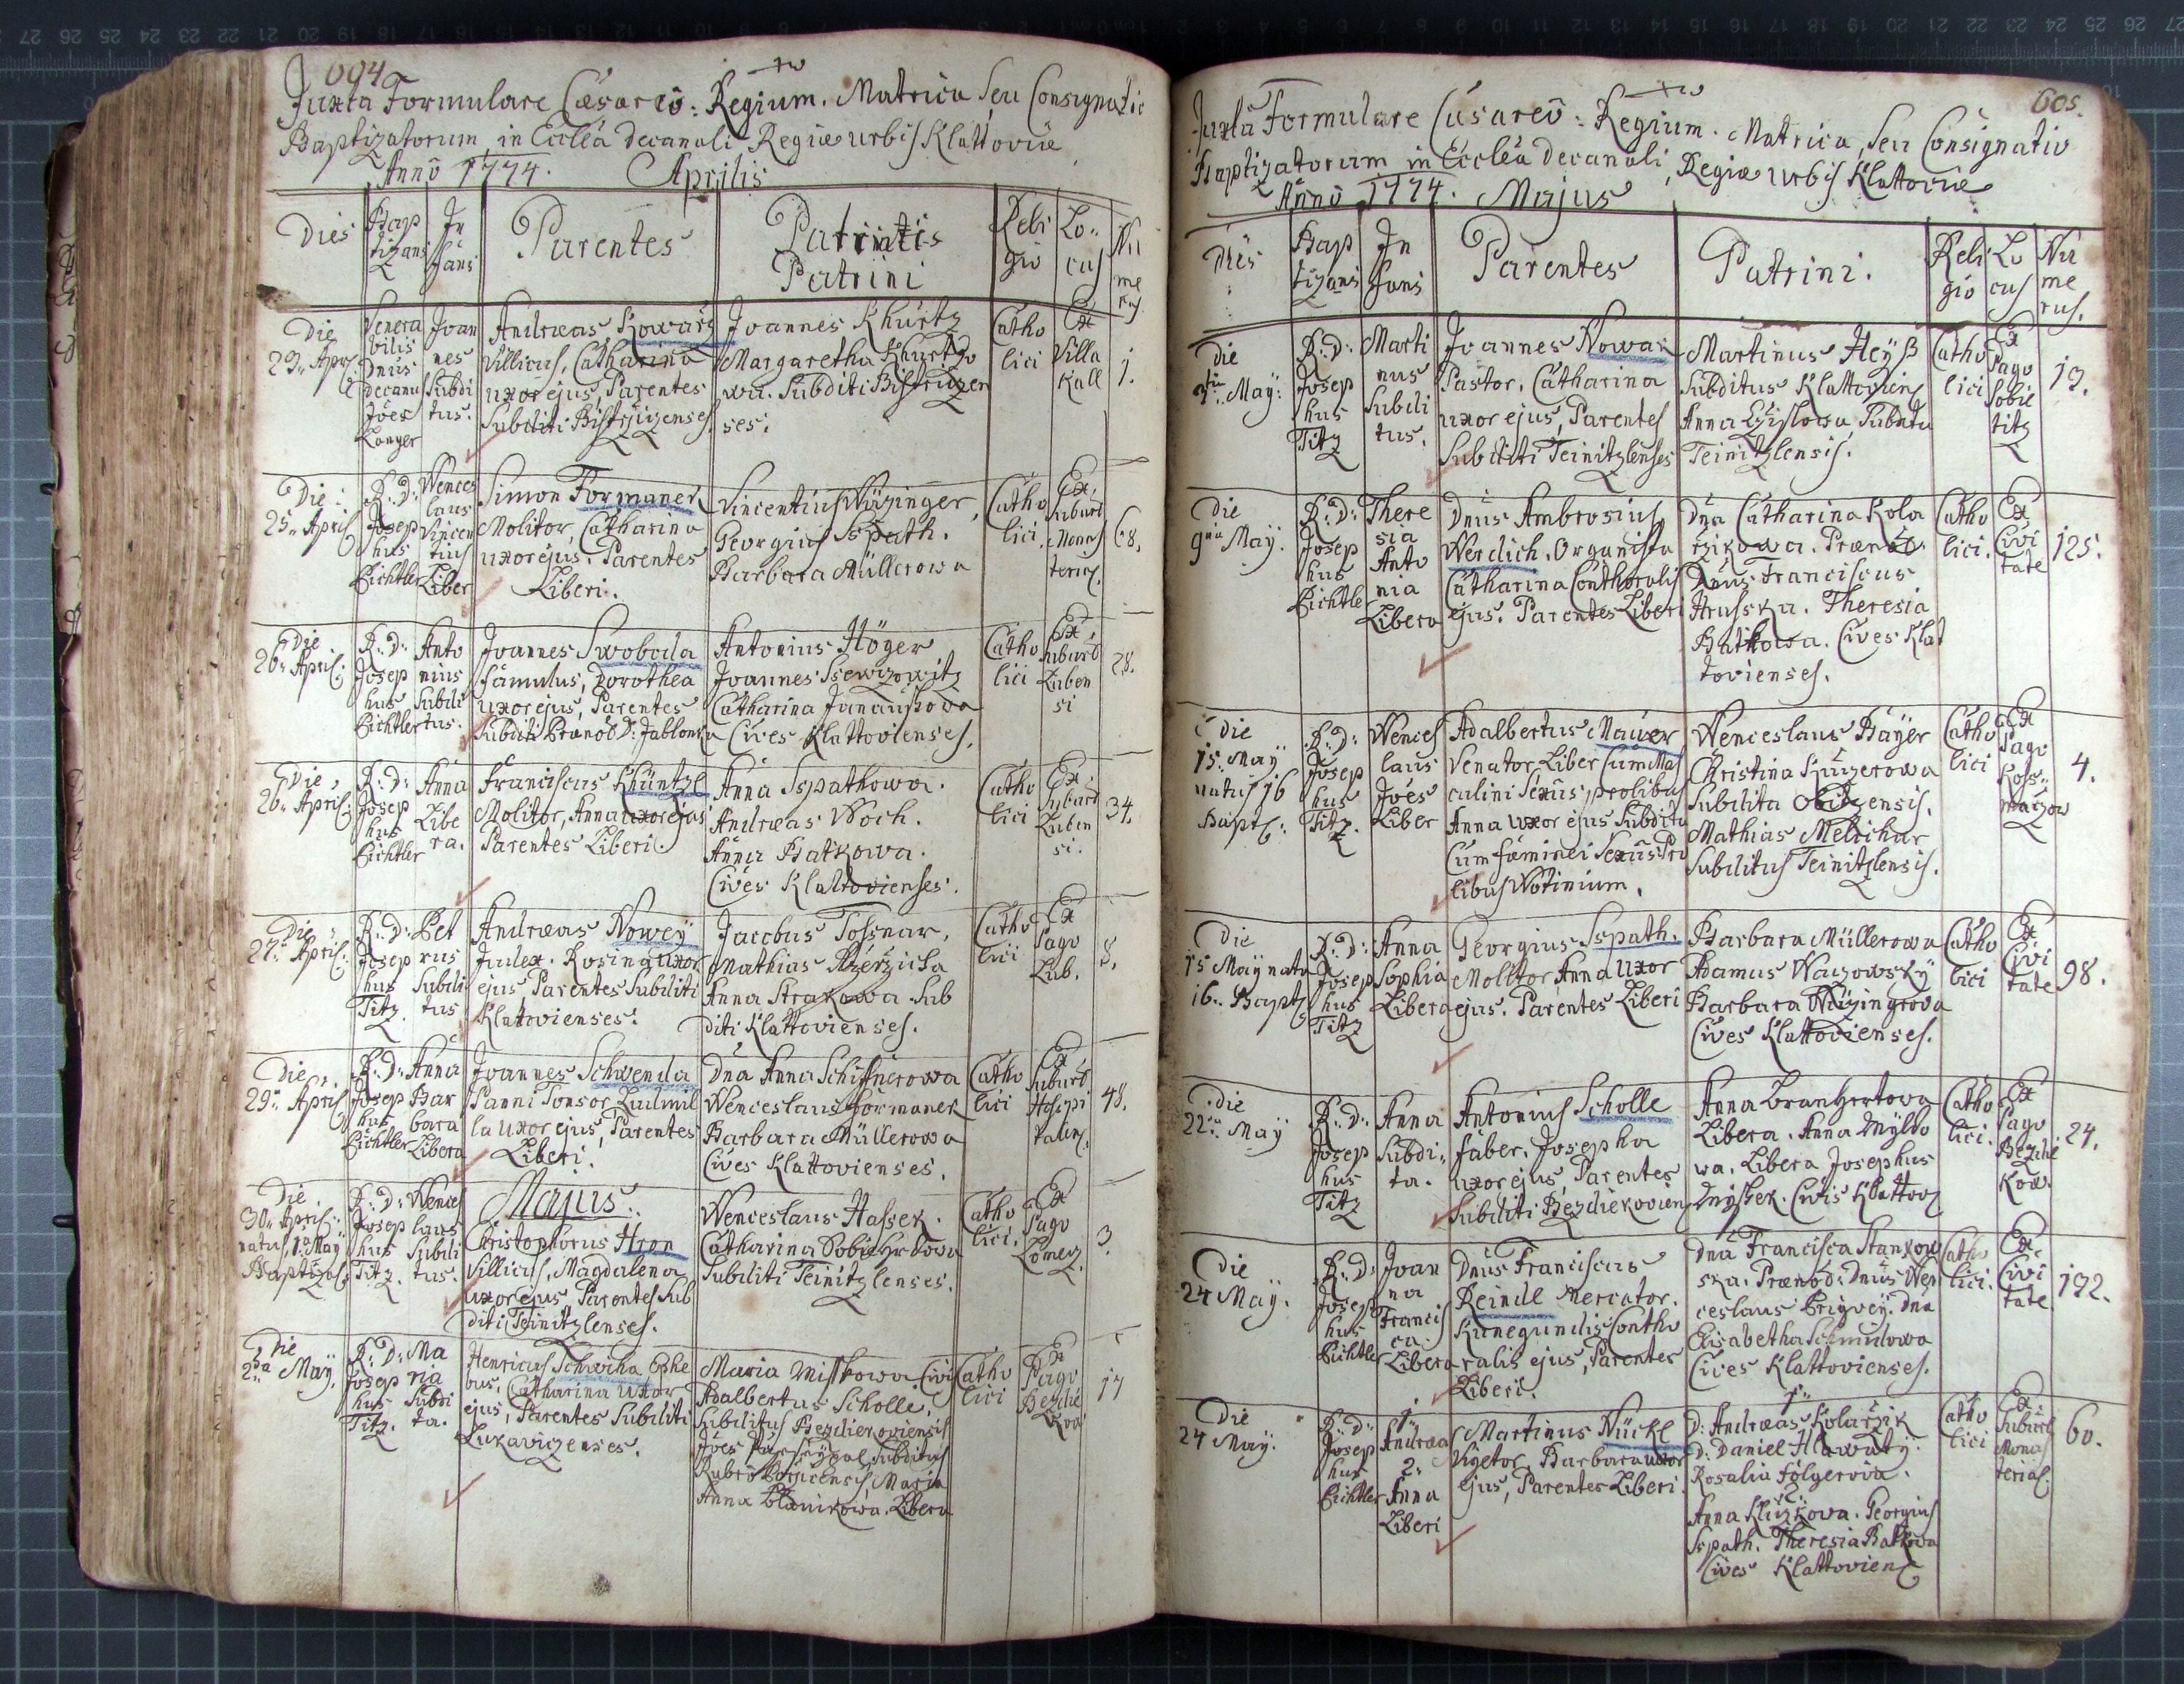 694
Juxta Formulare Cæsareô: Regium. Matrica Seu Consignatio
Baptizatorum, in Ecclêa decanali Regiæ urbis Klattoviæ
Annô 1774. Aprilis
Dies
Bap
tizans
In
fans
Parentes
Patrini
Reli
gio
Lo..
cus
Nu
me
rus
Die
23. Apr.
Venera
bilis
Dnus
decanu
Jôes
Langer
Joan
nes
Subdi
tus.
Andreas Kowarz
Villicus, Catharina
uxor ejus, Parentes
Subditi Bistrzizenses
Joannes Khürtz
Margaretha Khurtzo
wa. Subditi Bistrzizen
ses.
Catho
lici
Ex
Villa
Kall
1.
Die
25. April
R: D:
Josep
hus
Eichtler
Wences
laus
Vincen
tius
Liber
Simon Formanek
Molitor, Catharina
uxor ejus. Parentes
Liberi.
Vincentius Wizinger,
Georgius Sspath.
Barbara Müllerowa
Catho
lici.
Ex
Suburb
Monas
terias.
68.
Die
26. April:
R: D:
Josep
hus
Eichtler
Anto
nius
Subdi
tus.
Joannes Swoboda
famulus, Dorothea
uxor ejus, Parentes
Subditi Prænob D: Jablonska
Antonius Höger
Joannes
Catharina
Cives Klattovienses.
Catho
lici
Ex
Suburb
Luben
si
28.
Die
26. April:
R: D:
Josep
hus
Eichtler
Anna
Libe
ra.
Franciscus Khüntzl
Molitor, Anna uxor ejus
Parentes Liberi.
Anna Sspathowa.
Andreas Woch.
Anna Batkowa.
Cives Klattovienses.
Catho
lici
Ex
Suburb
Luben
si.
34.
Die
27. April:
R: D:
Josep
hus
Titz.
Pet
rus
Subdi
tus
Andreas Nowey
Judex. Rosina uxor
ejus Parentes Subditi
Klattovienses.
Jacobus Tossnar,
Mathias
Anna Strakowa Sub
diti Klattovienses.
Catho
lici
Ex
Pago
Lub.
8.
Die
29. April
R: D:
Josep
hus
Eichtler
Anna
Bar
bara
Libera
Joannes Schwenda
Panni Tonsor Ludmil
la uxor ejus, Parentes
Liberi.
Dna Anna Schiffnerowa
Wenceslaus Formanek
Barbara Müllerowa
Cives Klattovienses.
Catho
lici
Ex
Suburb
Hospi
talens.
48.
Die
30. April:
natus, 1a May
Baptizat:
R: D:
Josep
hus
Titz.
Wences
laus
Subdi
tus.
Majus.
Christophorus Hron
Villicus, Magdalena
uxor ejus Parentes Sub
diti Teinitzlenses.
Wenceslaus Hassek.
Catharina
Subditi Teinitzlenses.
Catho
lici.
Ex
Pago
3.
Die
2da May.
R: D:
Josep
hus
Titz.
Ma
ria
Subdi
ta.
Henricus Schwiha, Ephe
bus, Catharina uxor
ejus, Parentes Subditi
Lukaviczenses.
Maria Misskowa Civis
Adalbertus Scholle,
Subditus Bezdiekoviensis
Jôes Subditus
Maria
Anna Libera
Catho
lici
Ex
Pago
Bezdie
kow
17
605.
Juxta Formulare Cæsareô: Regium. Matrica, Seu Consignatio
Baptizatorum in Ecclêa Decanali, Regiæ urbis Klattoviæ
Annô 1774. Majus
Dies
Bap
tizans
In
fans
Parentes
Patrini.
Reli
gio
Lo
cus
Nu
me
rus.
Die
May:
R: D:
Josep
hus
Titz
Marti
nus
Subdi
tus.
Joannes Nowak
Pastor, Catharina
uxor ejus, Parentes
Subditi Teinitzlenses
Martinus Heyß
Subditus Klattoviens
Anna Subdita
Teinitzlensis.
Catho
lici
Ex
Pago
Sobie
titz
13.
Die
9na May.
R: D:
Josep
hus
Eichtler
There
sia
Anto
nia
Libera
Dnus Ambrosius
Werdich. Organista
Catharina Conthoralis
ejus. Parentes Liberi
Dna Catharina Kola
rzikowa. Prænob.
Dnus Franciscus
Hrusska. Theresia
Batkowa. Cives Klat
tovienses.
Catho
lici.
Ex
Civi
tate
125.
Die
15. May
natus 16
Bapt:
R: D:
Josep
hus
Titz.
Wences
laus
Jôes
Liber
Adalbertus Mauer
Venator, Liber cum Mas
culini Sexus prolibus
Anna uxor ejus Subdita
Cum fæminei Sexus Pro
libus
Wenceslaus Bayer
Christina Kuzerowa
Subdita
Mathias Melichar
Subditus Teinitzlensis.
Catho
lici
Ex
Pago
4.
Die
15 May nata
16. Bapt
R: D:
Josep
hus
Titz
Anna
Sophia
Libera
Georgius Sspath.
Molitor Anna uxor
ejus. Parentes Liberi
Barbara Müllerowa
Adamus Waczowsky
Barbara Wizingrowa
Cives Klattovienses.
Catho
lici
Ex
Civi
tate
98.
Die
22. May
R: D:
Josep
hus
Titz
Anna
Subdi
ta.
Antonius Scholle
faber, Josepha
uxor ejus, Parentes
Subditi Bezdiekovien
Anna
Libera. Anna
wa. Libera Josephus
Civis Klattov
Catho
lici.
Ex
Pago
Bezdie
kow.
24.
Die
24 May.
R: D:
Josep
hus
Eichtler
Joan
na
Francis
ca
Libera
Dnus Franciscus
Reindl Mercator.
Kunegundis Contho
ralis ejus, Parentes
Liberi.
Dna Francisca Stankow
ska. Prænob: Dnus Wen
ceslaus Dna
Elisabetha
Cives Klattovienses.
Catho
lici.
Ex
Civi
tate
132.
Die
24 May.
R: D:
Josep
hus
Eichtler
1.
Andreas
2.
Anna
Liberi
Martinus Nückl
Vietor, Barbara uxor
ejus, Parentes Liberi.
1.
D: Andreas Kolarzik
D: Daniel Hlawaty.
Rosalia
2.
Anna Georgius
Sspath. Theresia Batkowa
Cives Klattoviens
Catho
lici
Ex
Suburb
Monas
terias.
60.